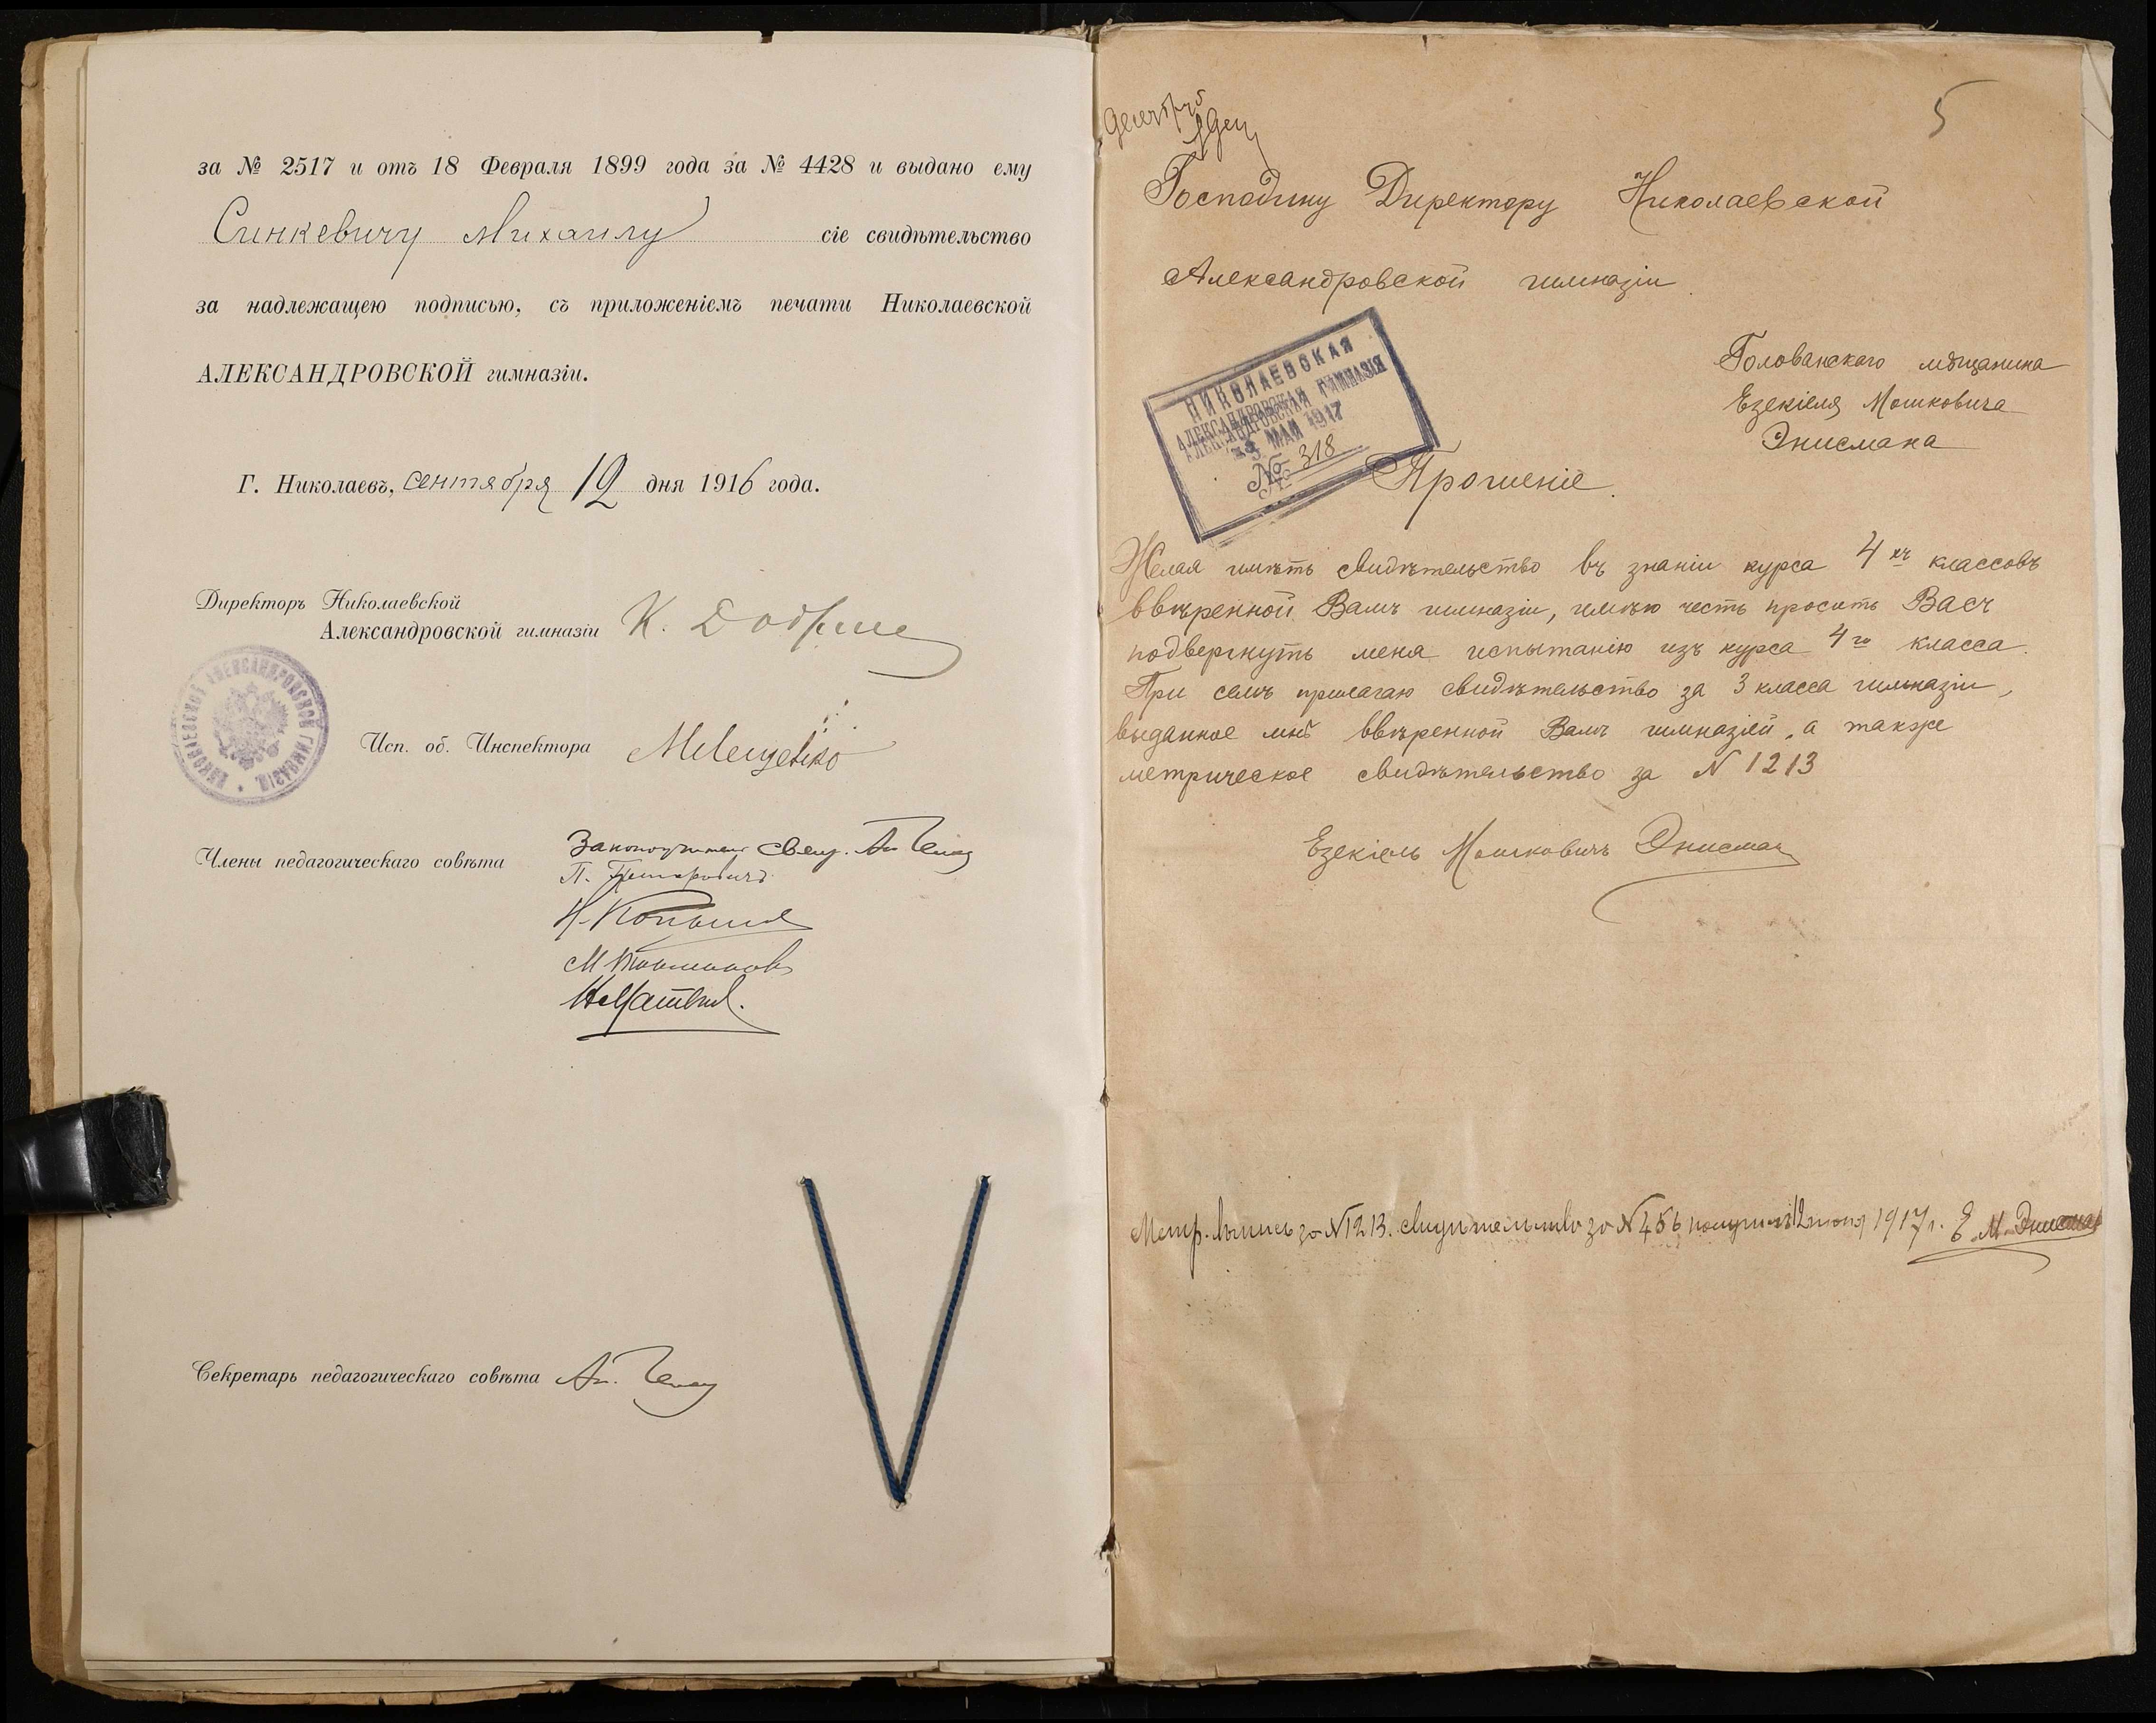 за № 2517 и отъ 18 Февраля 1899 года за № 4428 и выдано ему
Синкевичу Михаилу сіе свидѣтельство
за надлежащею подписью, съ приложеніемъ печати Николаевской
АЛЕКСАНДРОВСКОЙ гимназіи.
Г. Николаевъ, сентября 12 дня 1916 года.
Директоръ Николаевской
Александровской гимназіи К.
Исп. об. Инспектора
Члены педагогическаго совѣта
Законоучитель свящ. Ал.
П.
Н.
М.
Секретарь педагогическаго совѣта Ал.
5
Господину Директору Николаевской
Александровской гимназіи
НИКОЛАЕВСКАЯ
АЛЕКСАНДРОВСКАЯ ГИМНАЗІЯ
МАЙ 1917
№ 318
Голованскаго мѣщанина
Езекіеля Мошковича
Энисмана
Прошеніе.
Желая имѣть свидѣтельство въ знаніи курса 4хъ классовъ
ввѣренной Вамъ гимназіи, имѣю честь просить Васъ
подвергнуть меня испытанію изъ курса 4го класса.
При семъ прилагаю свидѣтельство за 3 класса гимназіи,
выданное мнѣ ввѣренной Вамъ гимназіей, а также
метрическое свидѣтельство за N 1213
Езекіель Мошковичъ Энисман
Метр. выпись за N 1213. свидѣтельство за N 456 получилъ 12 іюня 1917 г. Е. М. Энисман